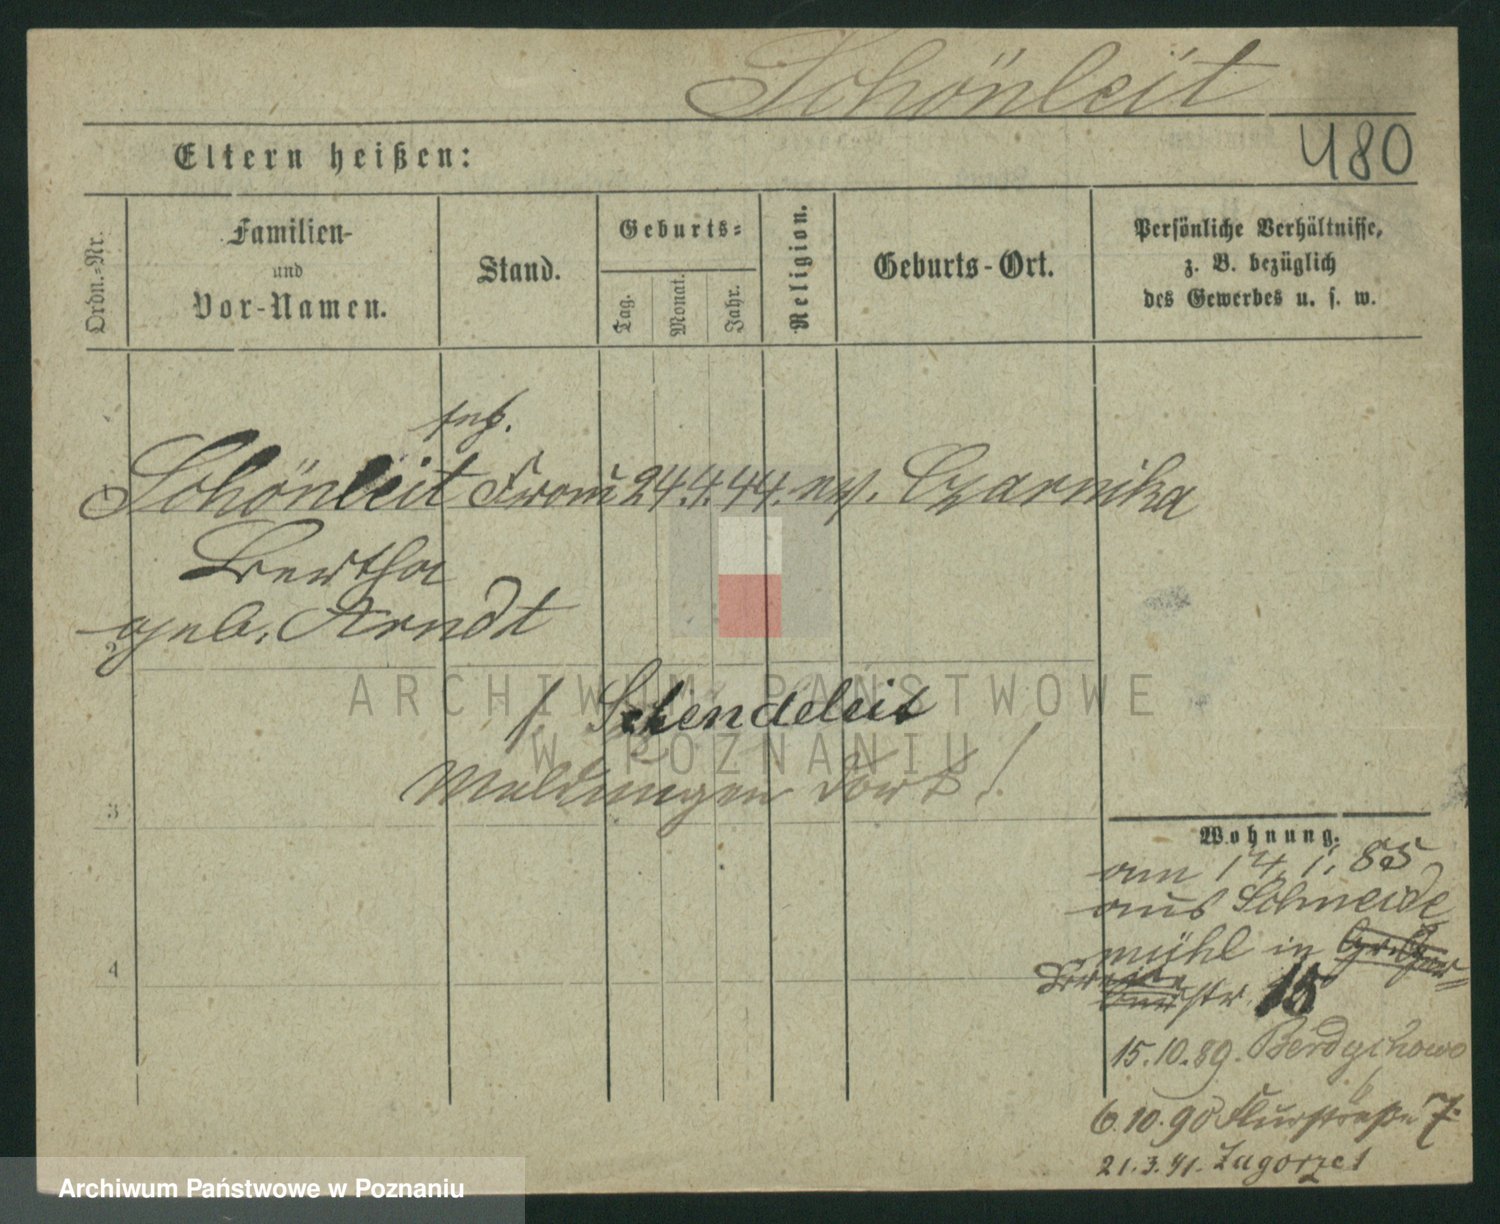 Schönleit
480
Eltern heißen:
Ordn.-Nr.
Familien-
und
Vor-Namen.
Stand.
Geburts-
Tag.
Monat.
Jahr.
Religion.
Geburts-Ort.
Persönliche Verhältnisse,
z. B. bezüglich
des Gewerbes u. s. w.
Schönleit Frau 24.4.44. ev. Czarnika
Bertha
geb. Arndt
2
Schendeleit
Meldungen dort!
3
4
Wohnung.
am 14.1.85
aus Schneide
mühl in
str. 15
15.10.89. Berdychowo
6.10.90 Flurstraße 7.
21.3.91. Zagorze 1
ARCHIWUM PAŃSTWOWE
W POZNANIU
Archiwum Państwowe w Poznaniu